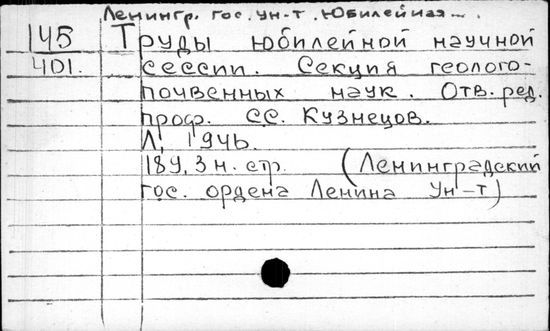 Ленингр. гос. ун-т. Юбилейная...
145 Труды юбилейной научной
401. сессии. Секция геолого-
почвенных наук. Отв. ред.
проф. С.С. Кузнецов.
Л, 1946.
189, 3 н. стр. (Ленинградский
гос. ордена Ленина Ун-т)